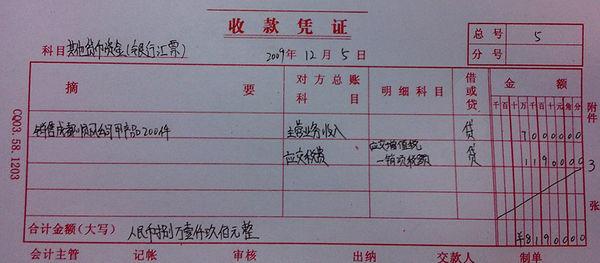 收款凭证
总号 5
科目 其他货币资金(银行汇票) 2009年12月5日
分号
摘要 对方总账科目 明细科目 借或贷 金额
千百十万千百十元角分 千百十万千百十元角分
销售成都 公司甲产品200件 主营业务收入 贷 7000000
应交税费 应交增值税 贷 1190000
一销项税额
附件 3 张
合计金额(大写) 人民币捌万壹仟玖佰元整 ¥8190000
会计主管 记帐 审核 出纳 交款人 制单
CQ03.58.1203